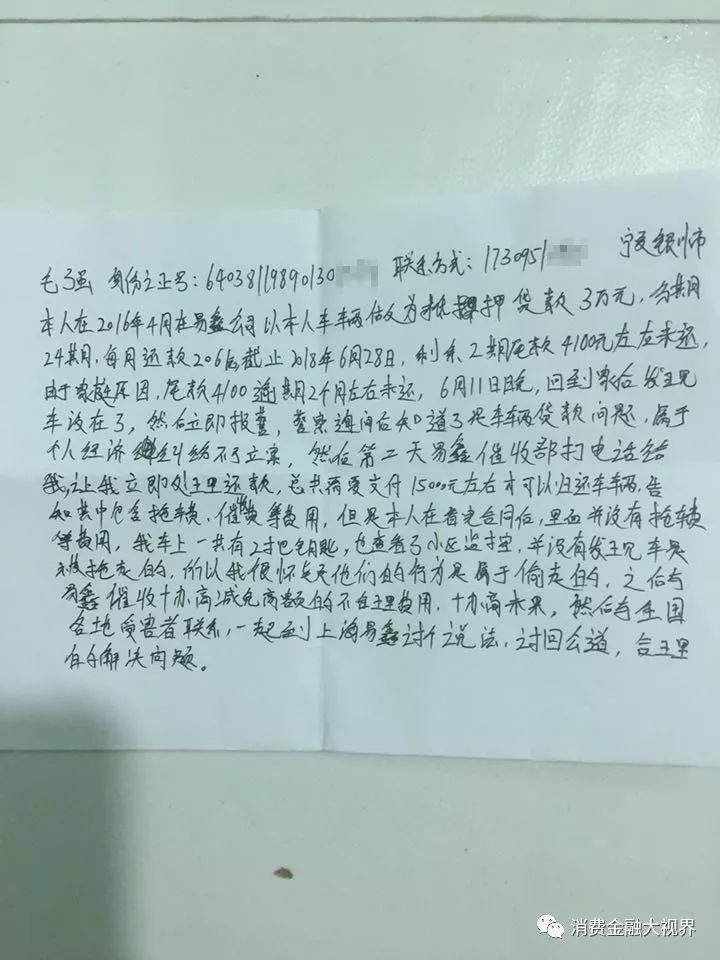 毛强 身份证号：64038119890130 联系方式：1730951 宁夏银川市
本人在2016年4月在易鑫公司以本人车辆估仪为抵押贷款3万元，分期
24期，每月还款206，截止2018年6月28日，剩余2期尾款4100元左右未还，
由于家庭原因，尾款4100逾期2个月左右未还，6月11日晚，回到家后发现
车没在了，然后立即报警，警察询问后知道了是车辆贷款问题，属于
个人经济纠纷不予立案，然后第二天易鑫催收部打电话给
我，让我立即处理还款，总共需要支付15000元左右才可以归还车辆，告
知其中包含拖车费、催费等费用，但是本人在看完合同后，里面并没有拖车费
等费用，我车上一共有2把钥匙，也查看了小区监控，并没有发现车是
被拖走的，所以我很怀疑他们的行为是属于偷走的，之后与
易鑫催收协商减免高额的不合理费用，协商未果，然后与全国
各地受害者联系，一起到上海易鑫讨个说法，讨回公道，合理
的解决问题。
消费金融大视界